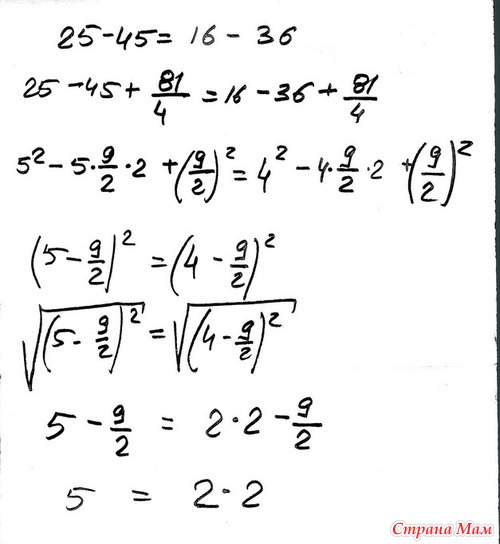 25 - 45 = 16 - 36
25 - 45 + 81/4 = 16 - 36 + 81/4
5² - 5·9/2·2 + (9/2)² = 4² - 4·9/2·2 + (9/2)²
(5 - 9/2)² = (4 - 9/2)²
√(5 - 9/2)² = √(4 - 9/2)²
5 - 9/2 = 2·2 - 9/2
5 = 2·2
Страна Мам